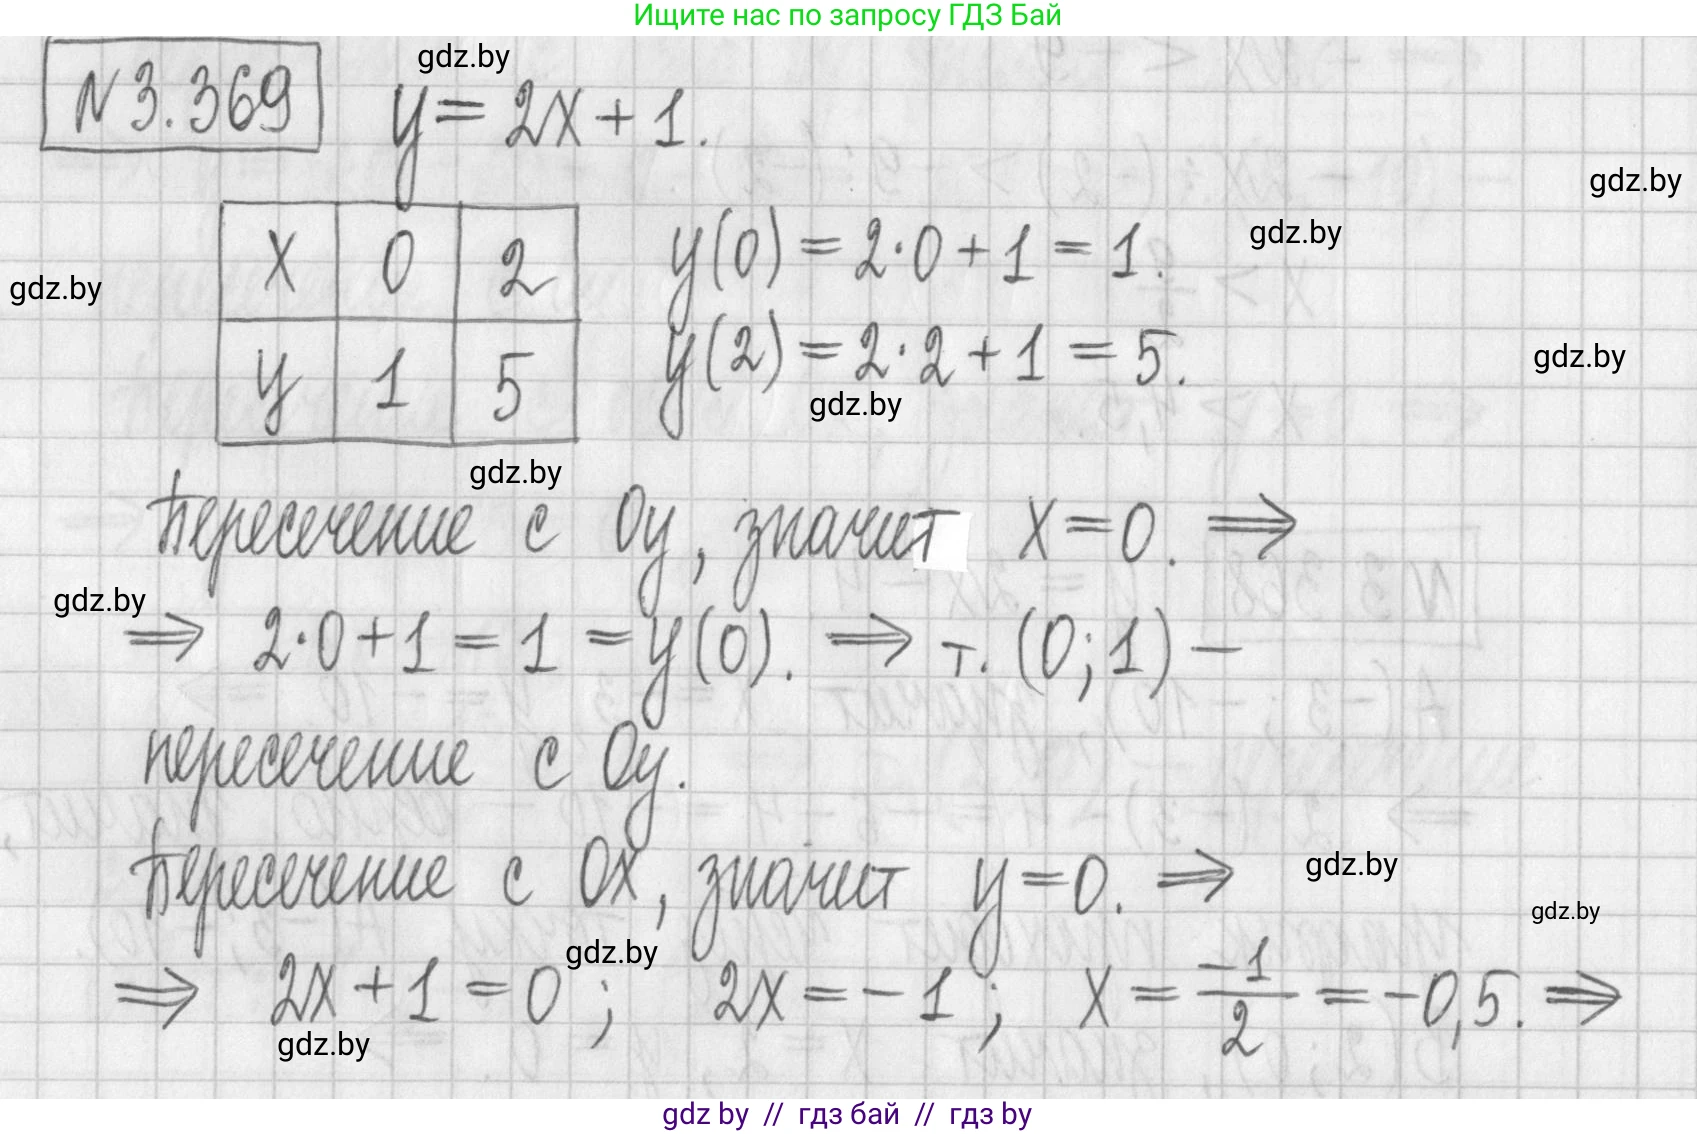 Ищите нас по запросу ГДЗ Бай
N3.369
gdz.by
y = 2x + 1.
gdz.by
x 0 2
y(0) = 2·0 + 1 = 1.
gdz.by
gdz.by
y 1 5
y(2) = 2·2 + 1 = 5.
gdz.by
gdz.by
gdz.by
Пересечение с Oy, значит x = 0. ⇒
gdz.by
⇒ 2·0 + 1 = 1 = y(0). ⇒ т. (0; 1) –
пересечение с Oy.
Пересечение с Ox, значит y = 0. ⇒
gdz.by
gdz.by
gdz.by
⇒ 2x + 1 = 0 ; 2x = -1 ; x = -1/2 = -0,5. ⇒
gdz.by
gdz by // гдз бай // гдз by